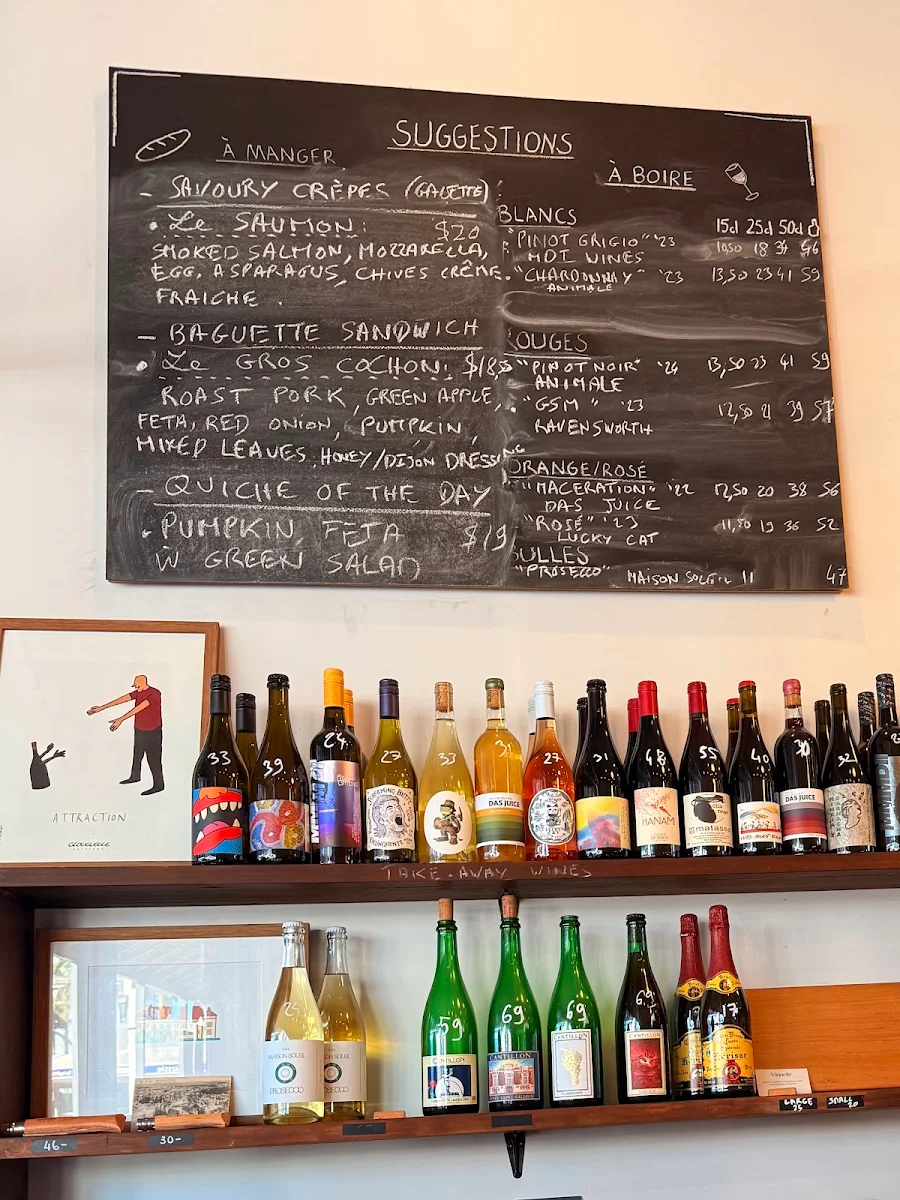 SUGGESTIONS
À MANGER
- SAVOURY CRÊPES (GALETTE)
• Le SAUMON: $20
SMOKED SALMON, MOZZARELLA,
EGG, ASPARAGUS, CHIVES CRÊME
FRAICHE.
- BAGUETTE SANDWICH
• Le GROS COCHON: $18,5
ROAST PORK, GREEN APPLE,
FETA, RED ONION, PUMPKIN,
MIXED LEAVES, HONEY/DIJON DRESSING
- QUICHE OF THE DAY
• PUMPKIN, FETA $19
W GREEN SALAD
À BOIRE
BLANCS 15cl 25cl 50cl
"PINOT GRIGIO" '23 10,50 18 34 46
HOT WINES
"CHARDONNAY" '23 13,50 23 41 59
ANIMALE
ROUGES
"PINOT NOIR" '24 13,50 23 41 59
ANIMALE
"GSM" '23 12,50 21 39 57
RAVENSWORTH
ORANGE/ROSÉ
"MACERATION" '22 12,50 20 38 56
DAS JUICE
"ROSÉ" '23 11,50 19 36 52
LUCKY CAT
BULLES
"PROSECCO" MAISON SOLEIL 11 47
ATTRACTION
33
39
24
27
33
31
27
DAS JUICE
31
48
HANAM
55
matassa
40
30
DAS JUICE
32
TAKE-AWAY WINES
MAISON SOLEIL
PROSECCO
59
CANTILLON
69
CANTILLON
69
69
17
46-
30-
LARGE
25
SMALL
20